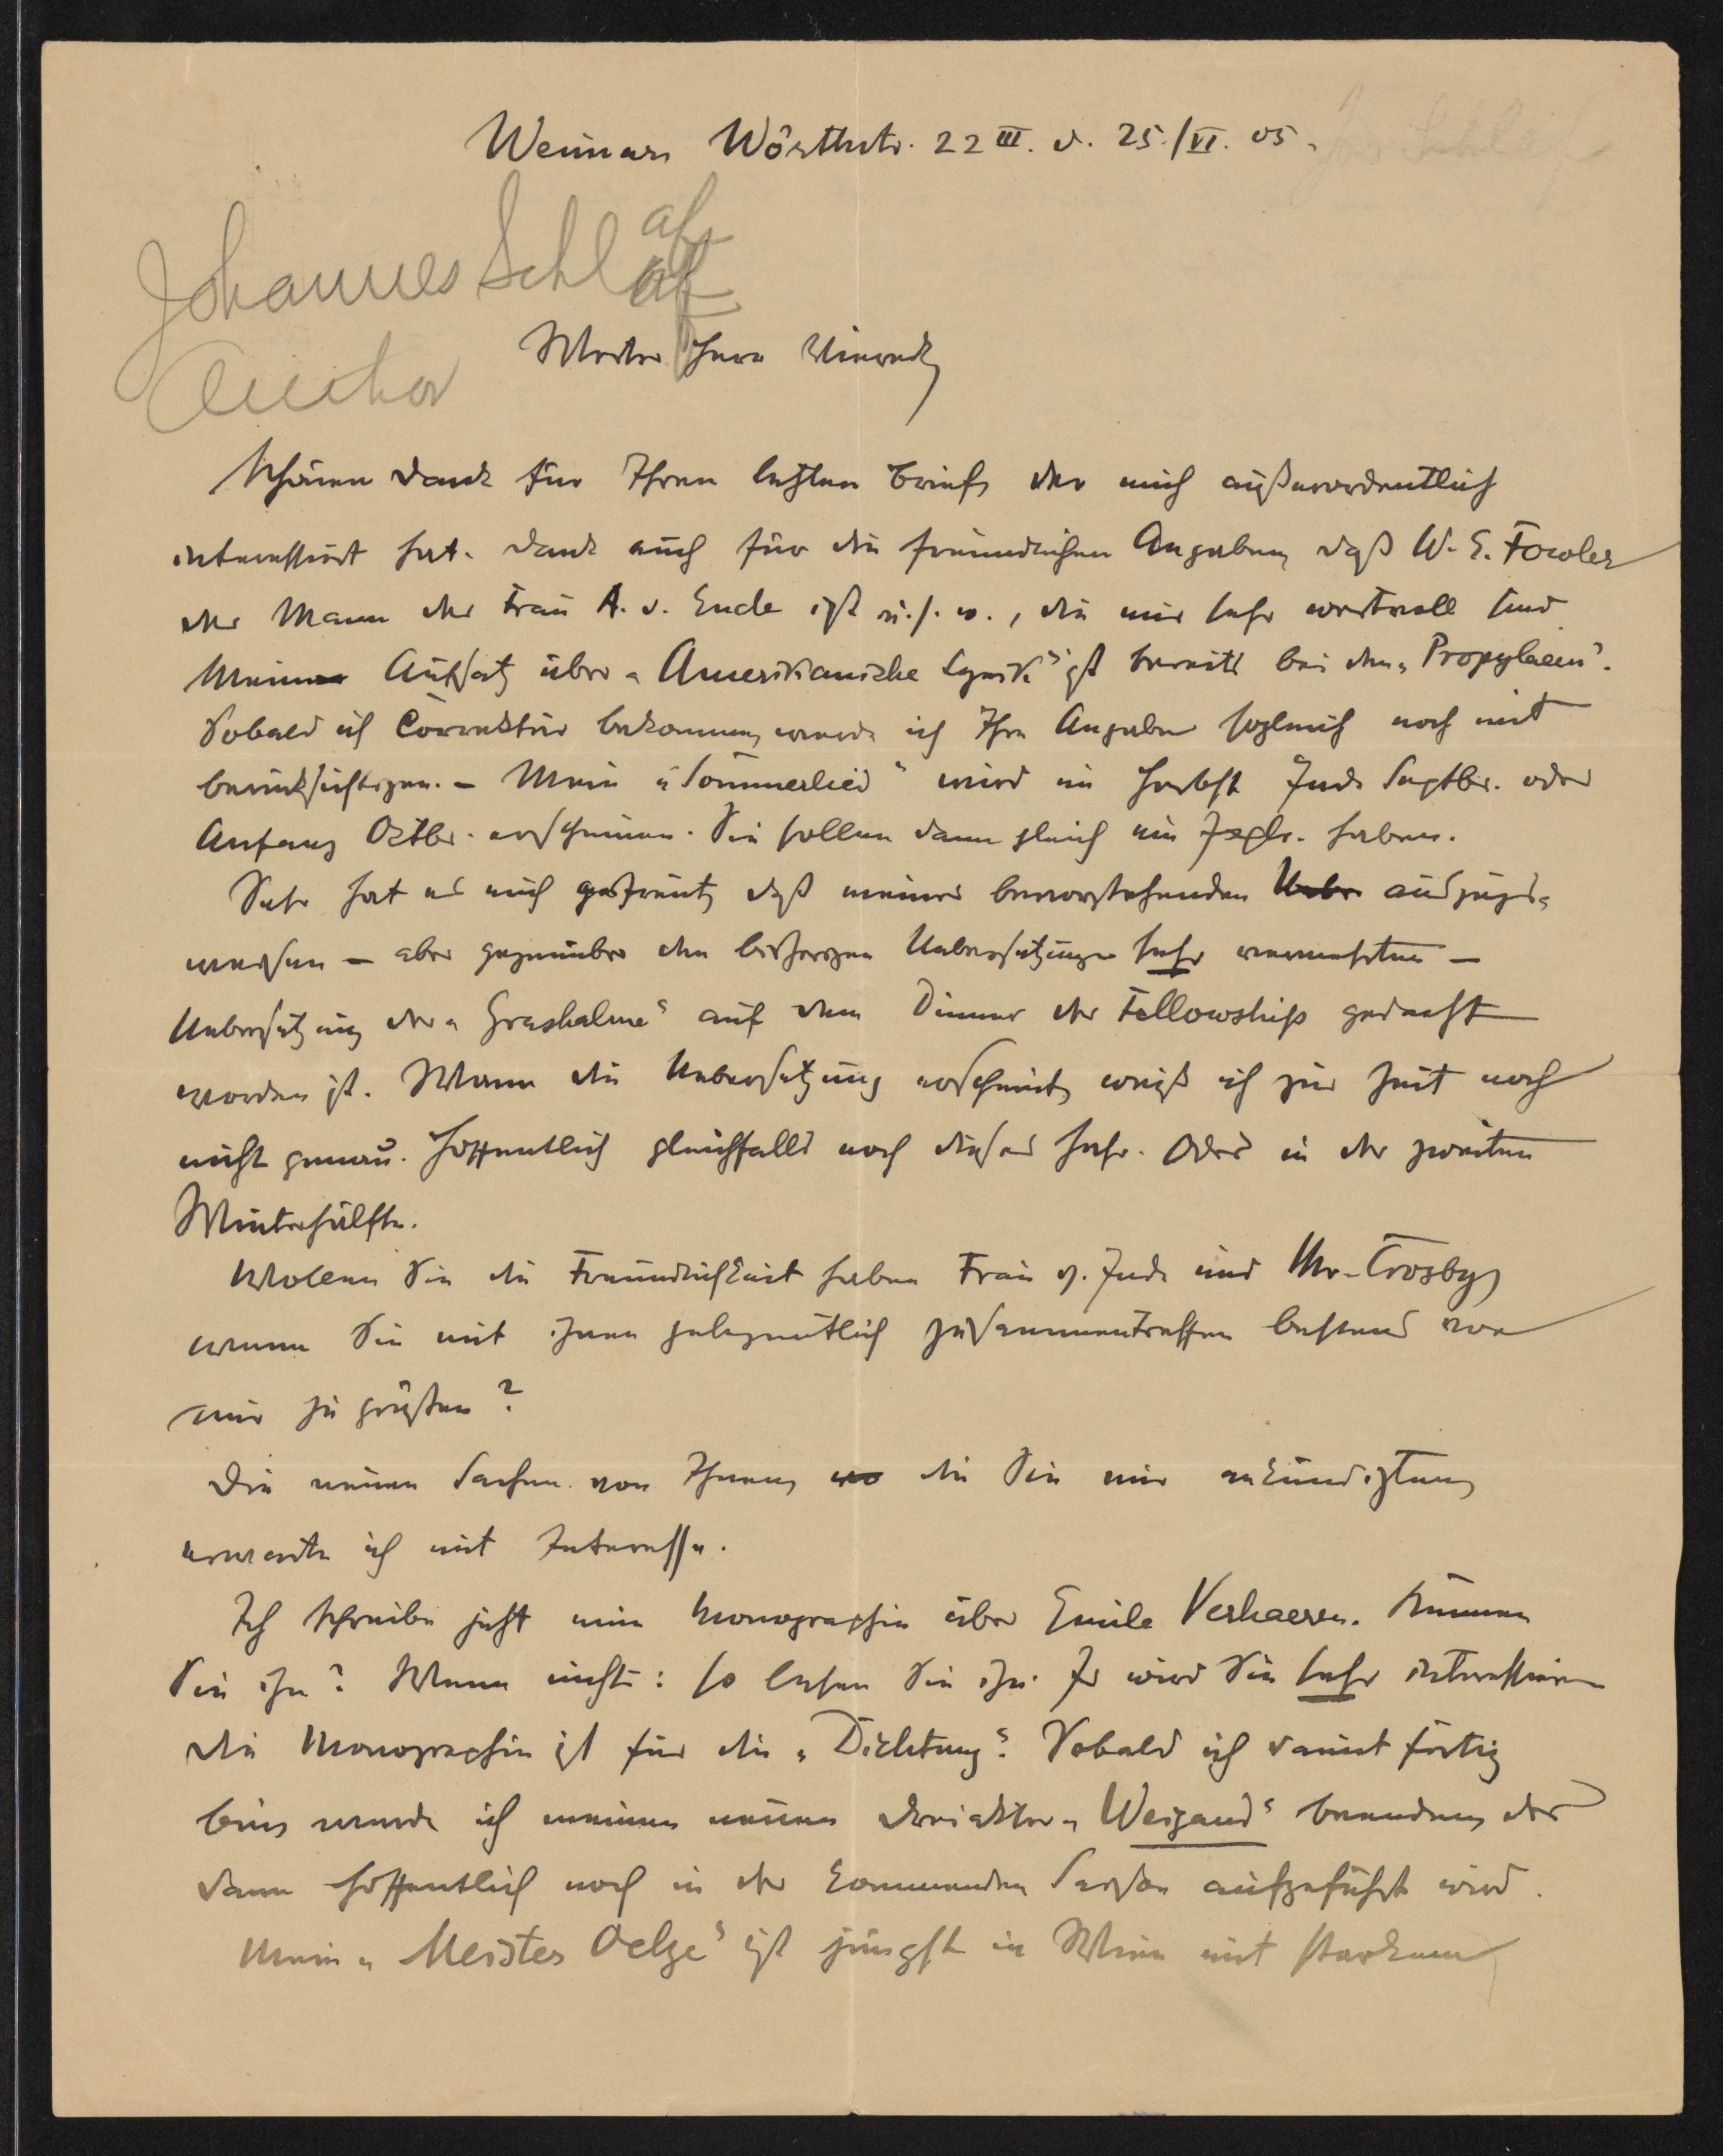 Weimar, Wörthstr. 22 III. d. 25./VI. 05.
Johannes Schlaf
af
Author
Werter Herr Viereck,
Schönen Dank für Ihren letzten Brief, der mich außerordentlich
interessiert hat. Dank auch für die freundlichen Angaben, daß W. E. Fowler
der Mann der Frau A. v. Ende ist u. s. w., die mir sehr wertvoll sind
Mein Aufsatz über „Amerikanische Lyrik“ ist bereits bei den „Propylaeen“.
Sobald ich Correktur bekomme, werde ich Ihre Angaben sogleich noch mit
berücksichtigen. – Mein „Sommerlied“ wird im Herbst Ende Septbr. oder
Anfang Octbr. erscheinen. Sie sollen dann gleich ein Expl. haben.
Sehr hat es mich gefreut, daß meiner bevorstehenden Uebe auszugs-
weisen – aber gegenüber den bisherigen Uebersetzungen sehr vermehrten –
Uebersetzung der „Grashalme“ auf dem Dinner der Fellowship gedacht
worden ist. Wann die Uebersetzung erscheint, weiß ich zur Zeit noch
nicht genau. Hoffentlich gleichfalls noch dieses Jahr. Oder in der zweiten
Winterhälfte.
Wollen Sie die Freundlichkeit haben Frau v. Ende und Mr. Crosby,
wenn Sie mit ihnen gelegentlich zusammentreffen bestens von
mir zu grüßen?
Die neuen Sachen von Ihnen, wo die Sie mir ankündigten,
erwarte ich mit Interesse.
Ich schreibe jetzt eine Monographie über Emile Verhaeren. Kennen
Sie ihn? Wenn nicht: so lesen Sie ihn. Er wird Sie sehr interessieren
Die Monographie ist für die „Dichtung“. Sobald ich damit fertig
bin, werde ich meinen neuen Dreiakter „Weigand“ beenden, der
dann hoffentlich noch in der kommenden Saison aufgeführt wird.
Mein „Meister Oelze“ ist jüngst in Wien mit starkem